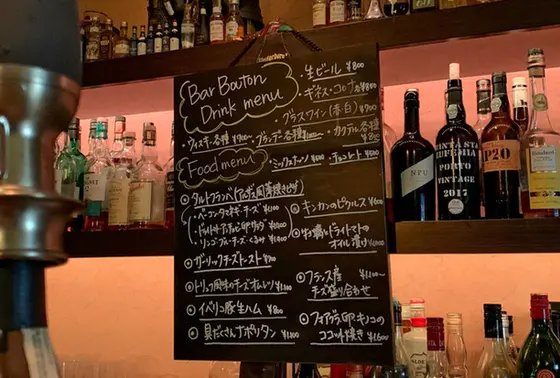 Bar Bouton
Drink menu
・生ビール ¥800
ギネス・コロナ ¥850
・グラスワイン(赤白) ¥900
・ウィスキー各種
・ブランデー各種
・カクテル各種
Food menu
・ミックスナッツ ¥500
・チョコレート ¥500
タルトフランベ
・ベーコン・タマネギ・チーズ
・リンゴ・ブルーチーズ・くるみ
ガーリックチーズトースト ¥700
トリュフ風味のチーズオムレツ
イベリコ豚生ハム ¥800
具だくさんナポリタン ¥1,100
キンカンのピクルス ¥600
牡蠣とドライトマトの
オイル漬け
フランス産
チーズ盛り合わせ
¥1,100〜
フォアグラ卵キノコの
ココット焼き ¥1,600
MPU
QUINTA STA
EUFEMIA
PORTO
VINTAGE
2017
P20